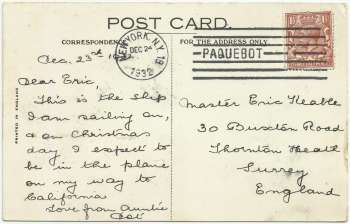 POST CARD.
CORRESPONDENCE
FOR THE ADDRESS ONLY
NEW YORK, N.Y.
DEC 24
1932
PAQUEBOT
PRINTED IN ENGLAND
Dec. 23rd
Dear Eric,
This is the ship
I am sailing on,
on Christmas
day I expect to
be in the plane
on my way to
California
Love from Auntie
Master Eric Keable
30 Buxton Road
Thornton Heath
Surrey
England